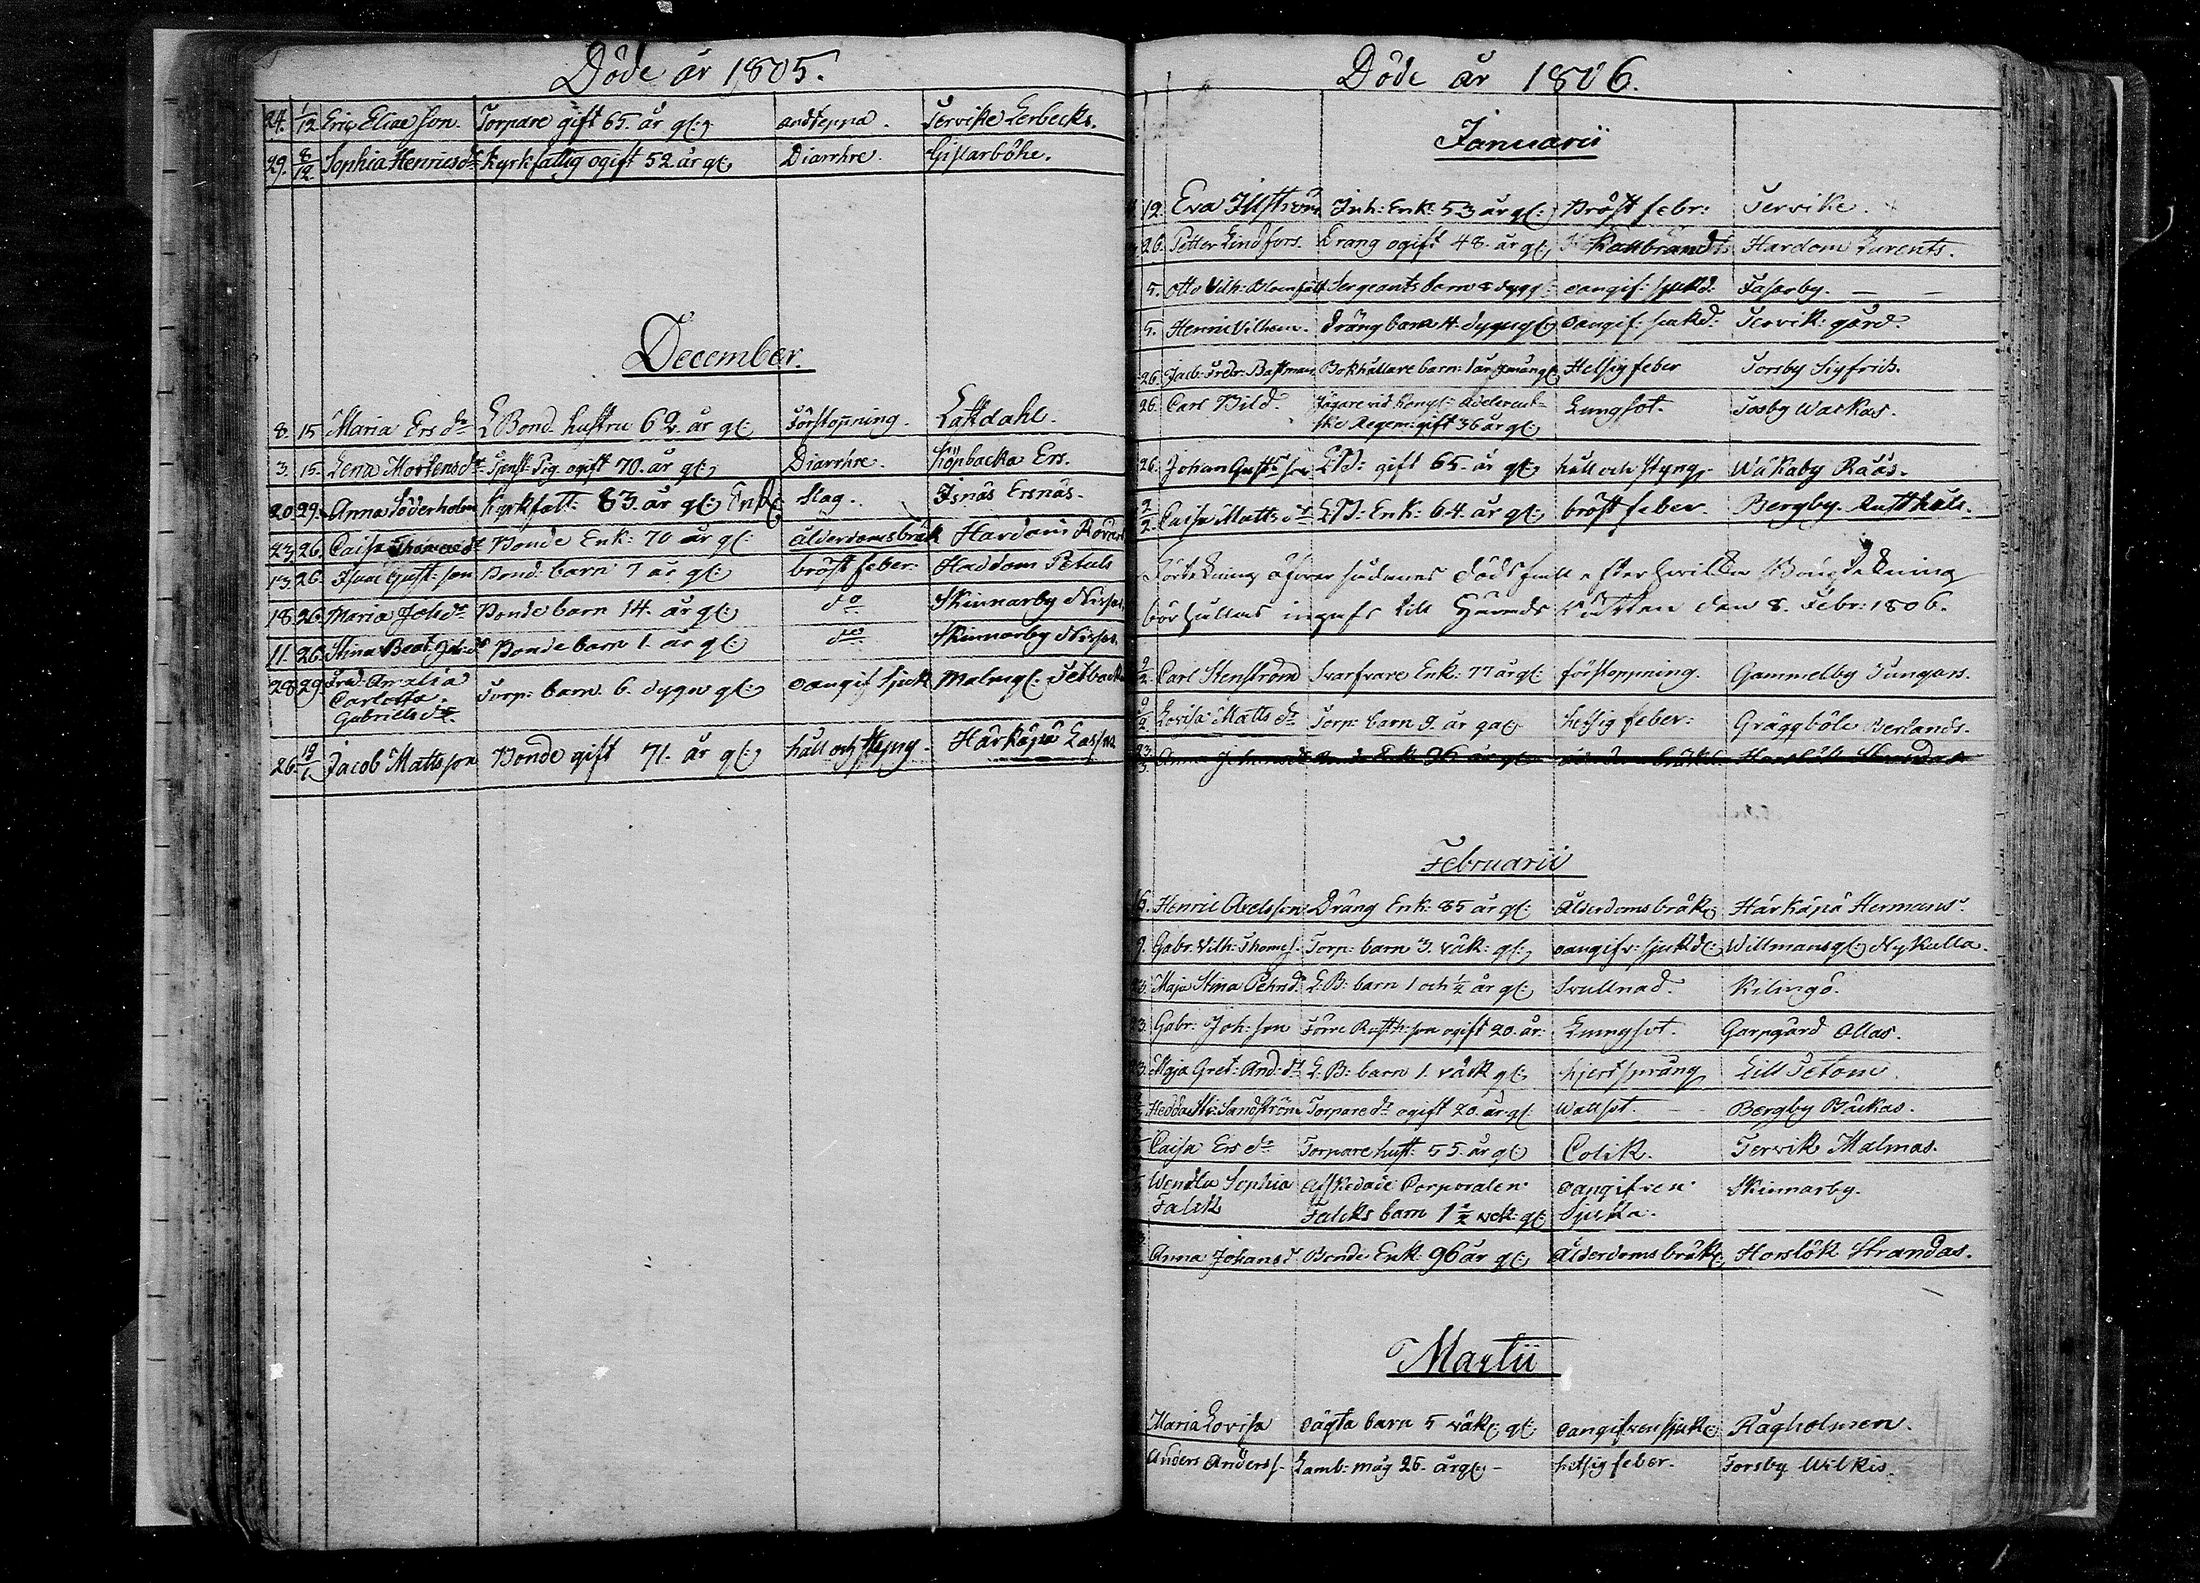 Döde år 1805.
24. 1/12 Eric Eliae son. Torpare gift 65. år gl: andteppa. Tervike Lerbecks.
29. 8/12 Sophia Henricsdr kyrkfattig ogift 52 år gl: Diarrhre. Gislarböhe.
December.
8. 15 Maria Ersdr LBond. hustru 62. år gl: Förstopning. Lakdahl.
3. 15. Lena Mortensdr Spenst. Pig. ogift 70. år gl: Diarrhre. Köpbacka Ers.
20 29. Anna Söderholm kyrkfatt: 83. år gl: Enk: slag. Isnäs Ersnäs.
23 26. Caisa Thomaedr Bonde Enk: 70 år gl: ålderdomsbråk Hardom
13 26. Isaac Gust: son Bond: barn 7 år gl: bröst feber: Haddom Petals
18. 26. Maria Johdr Bonde barn 14. år gl: do Skinnarby Nisses.
11. 26. Stina Beat. Joh:dr Bonde barn 1. år gl: do Skinnarby Nisses.
28 29. Fred: Amalia Torp: barn 6. dygn gl: oangif sjuk Malmgl. Tetback
Carlotta
Gabrielsdr.
26. 19/1 Jacob Mattsson Bonde gift 71. år gl: håll och styng. Härkäpä Lasses
Döde år 1806.
Januarii
12. Eva Illström Inh: Enk: 53 år gl: Bröst febr: Tervike.
26. Petter Lindfors. Drang ogift 48. år gl: Kallbrand Hardom Lurents.
5. Otto Vilh: Sergeants barn 8 dygn oangif: sjukd: Fasarby.
5. Henric Vilhem. Dräng barn 4. dygn gl: oangif: sjukd: Tervik: gård.
26. Jacb: Fredr: Bastman. Bokhållare barn: 1 år gl: Hetsig feber Torsby Sigfrids.
26. Carl Bild. Jägare vid Kongl: Adlercreut- Lungsot. Tosby Waskas.
ske Regem: gift 36 år gl:
26. Johan Gusts son LB: gift 65. år gl: håll och styng. Wåkaby Rääs.
2/2 Caisa Mattsdr LB: Enk: 64. år gl: bröst feber Bergby Rusthåls.
Förtekning öfver sådanes dödsfall efter hvilka Bouptekning
bör hållas ingafs till Härads Rätten den 8. Febr: 1806.
9/2 Carl Stenström Svarfvare Enk: 77 år gl: förstoppning. Gammelby Jungars.
9/2 Lovisa Mattsdr Torp: barn 9. år gl: hetsig feber: Gräggböle Berlands.
23 Anna Johansdr Bonde Enk: 96 år gl: ålderdoms bråk: Horslök Strandas
Februarii
16. Henric Axelsson Dräng Enk: 85 år gl: Ålderdoms bråk: Härkäpä Hermans.
9. Gabr. Vilh: Thomes. Torp: barn 3. väk: gl: oangifv: sjukd: Willmansgl: Nykulla.
23. Maja Stina Pehrsd. L: B: barn 1 och 1/2 år gl: Svullnad. Kilingö.
23. Gabr: Joh: son Förre Rusth: son ogift 20. år: Lungsot. Garpgård Ollas.
23. Maja Gret: And: dr L: B: barn 1. väck gl: hjertsprång Lill Tetom.
Hedda St: Sandström Torpare dr ogift 20. år gl: Wattsot. Bergby Bäckas.
Caisa Ersdr Torpare hust: 55. år gl: Colik. Tervik Malmas.
Wendla Sophia afskedade Corporalen oangifven Skinnarby.
Falck Falcks barn 1 1/2 vek: gl: Sjuka.
Anna Johansd. Bonde Enk: 96 år gl: Ålderdoms bråk: Horslök Strandas.
Martii
Maria Lovisa oägta barn 5 väk: gl: oangifven sjuk: Rågholmen.
Anders Anderss. Lamb: måg 26. år gl: hetsig feber. Forsby Wilkis.